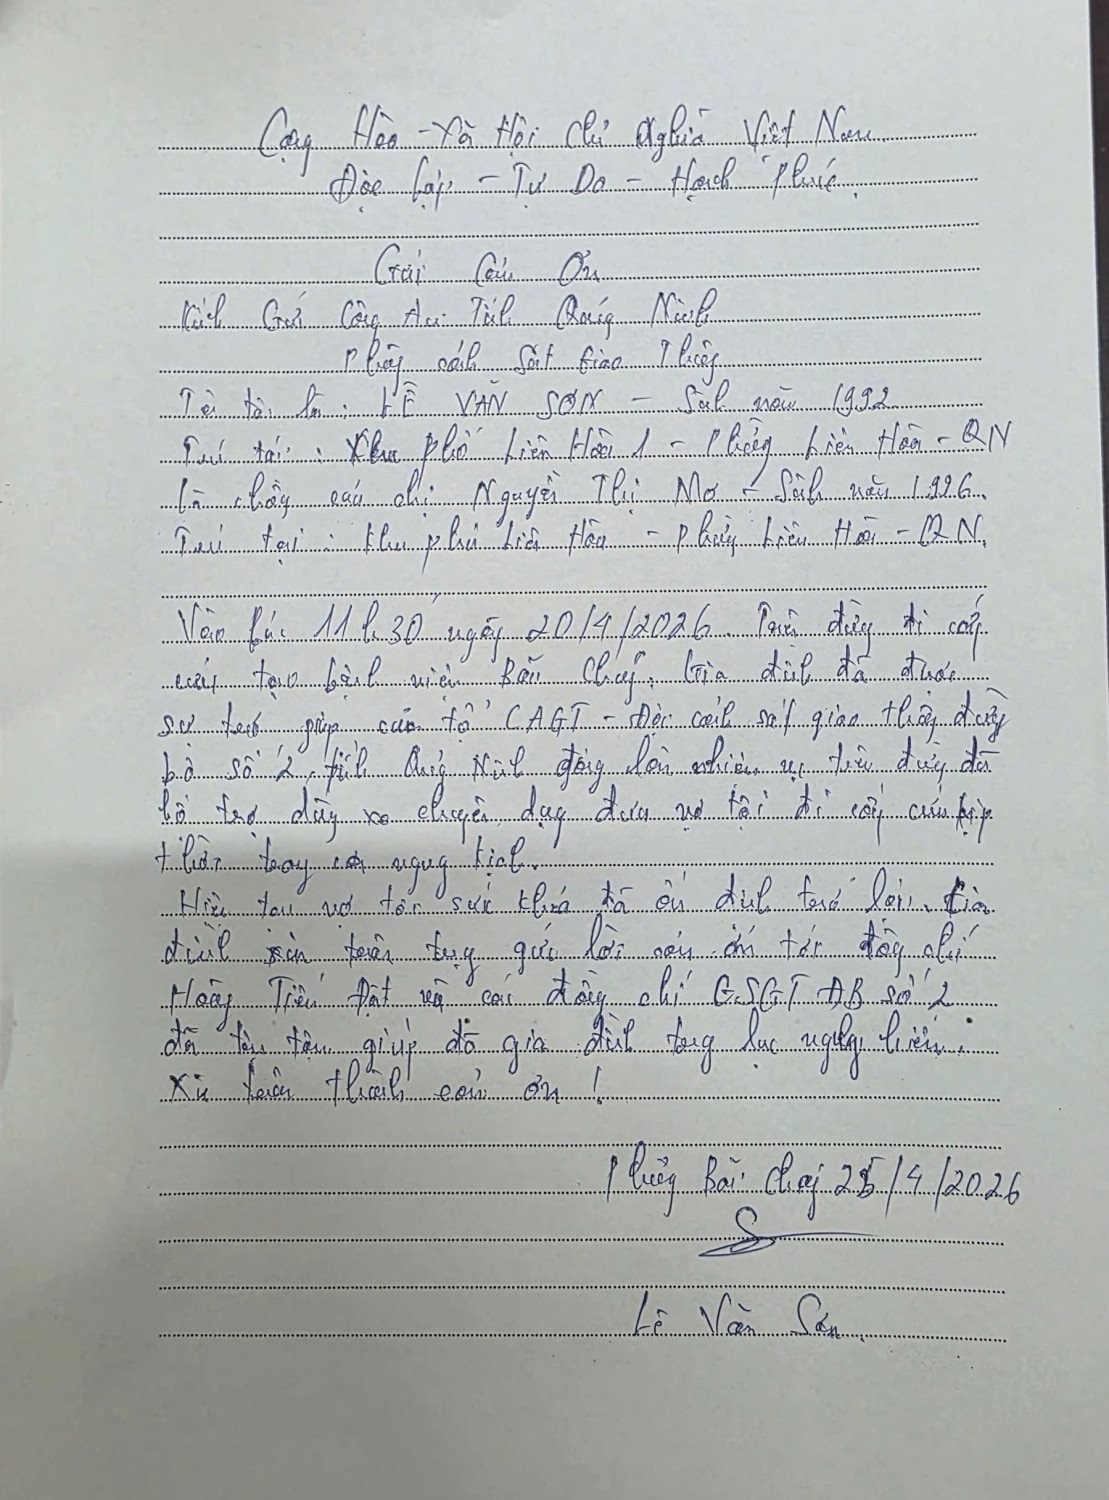 Cộng Hòa - Xã Hội Chủ Nghĩa Việt Nam
Độc Lập - Tự Do - Hạnh Phúc.
Giấy Cảm Ơn
Kính Gửi Công An Tỉnh Quảng Ninh
Phòng cảnh Sát Giao Thông
Tên tôi là : LÊ VĂN SƠN - Sinh năm 1992
Trú tại : Khu phố Liên Hòa 1 - Phường Liên Hòa - QN
Là chồng của chị Nguyễn Thị Mơ - Sinh năm 1996.
Trú tại : khu phố Liên Hòa - Phường Liên Hòa - QN.
Vào lúc 11h30 ngày 20/4/2026. Trên đường đi cấp
cứu tại bệnh viện Bãi Cháy. Gia đình đã được
sự trợ giúp của tổ CAGT - Đội cảnh sát giao thông đường
bộ số 2, tỉnh Quảng Ninh đang làm nhiệm vụ trên đường đã
hỗ trợ dùng xe chuyên dụng đưa vợ tôi đi cấp cứu kịp
thời trong cơn nguy kịch.
Hiện tại vợ tôi sức khỏe đã ổn định trở lại. Gia
đình xin trân trọng gửi lời cảm ơn tới đồng chí
Hoàng Tiến Đạt và các đồng chí CSGT ĐB số 2
đã tận tâm giúp đỡ gia đình trong lúc nguy hiểm.
Xin chân thành cảm ơn !
Phường Bãi Cháy 25/4/2026
Lê Văn Sơn